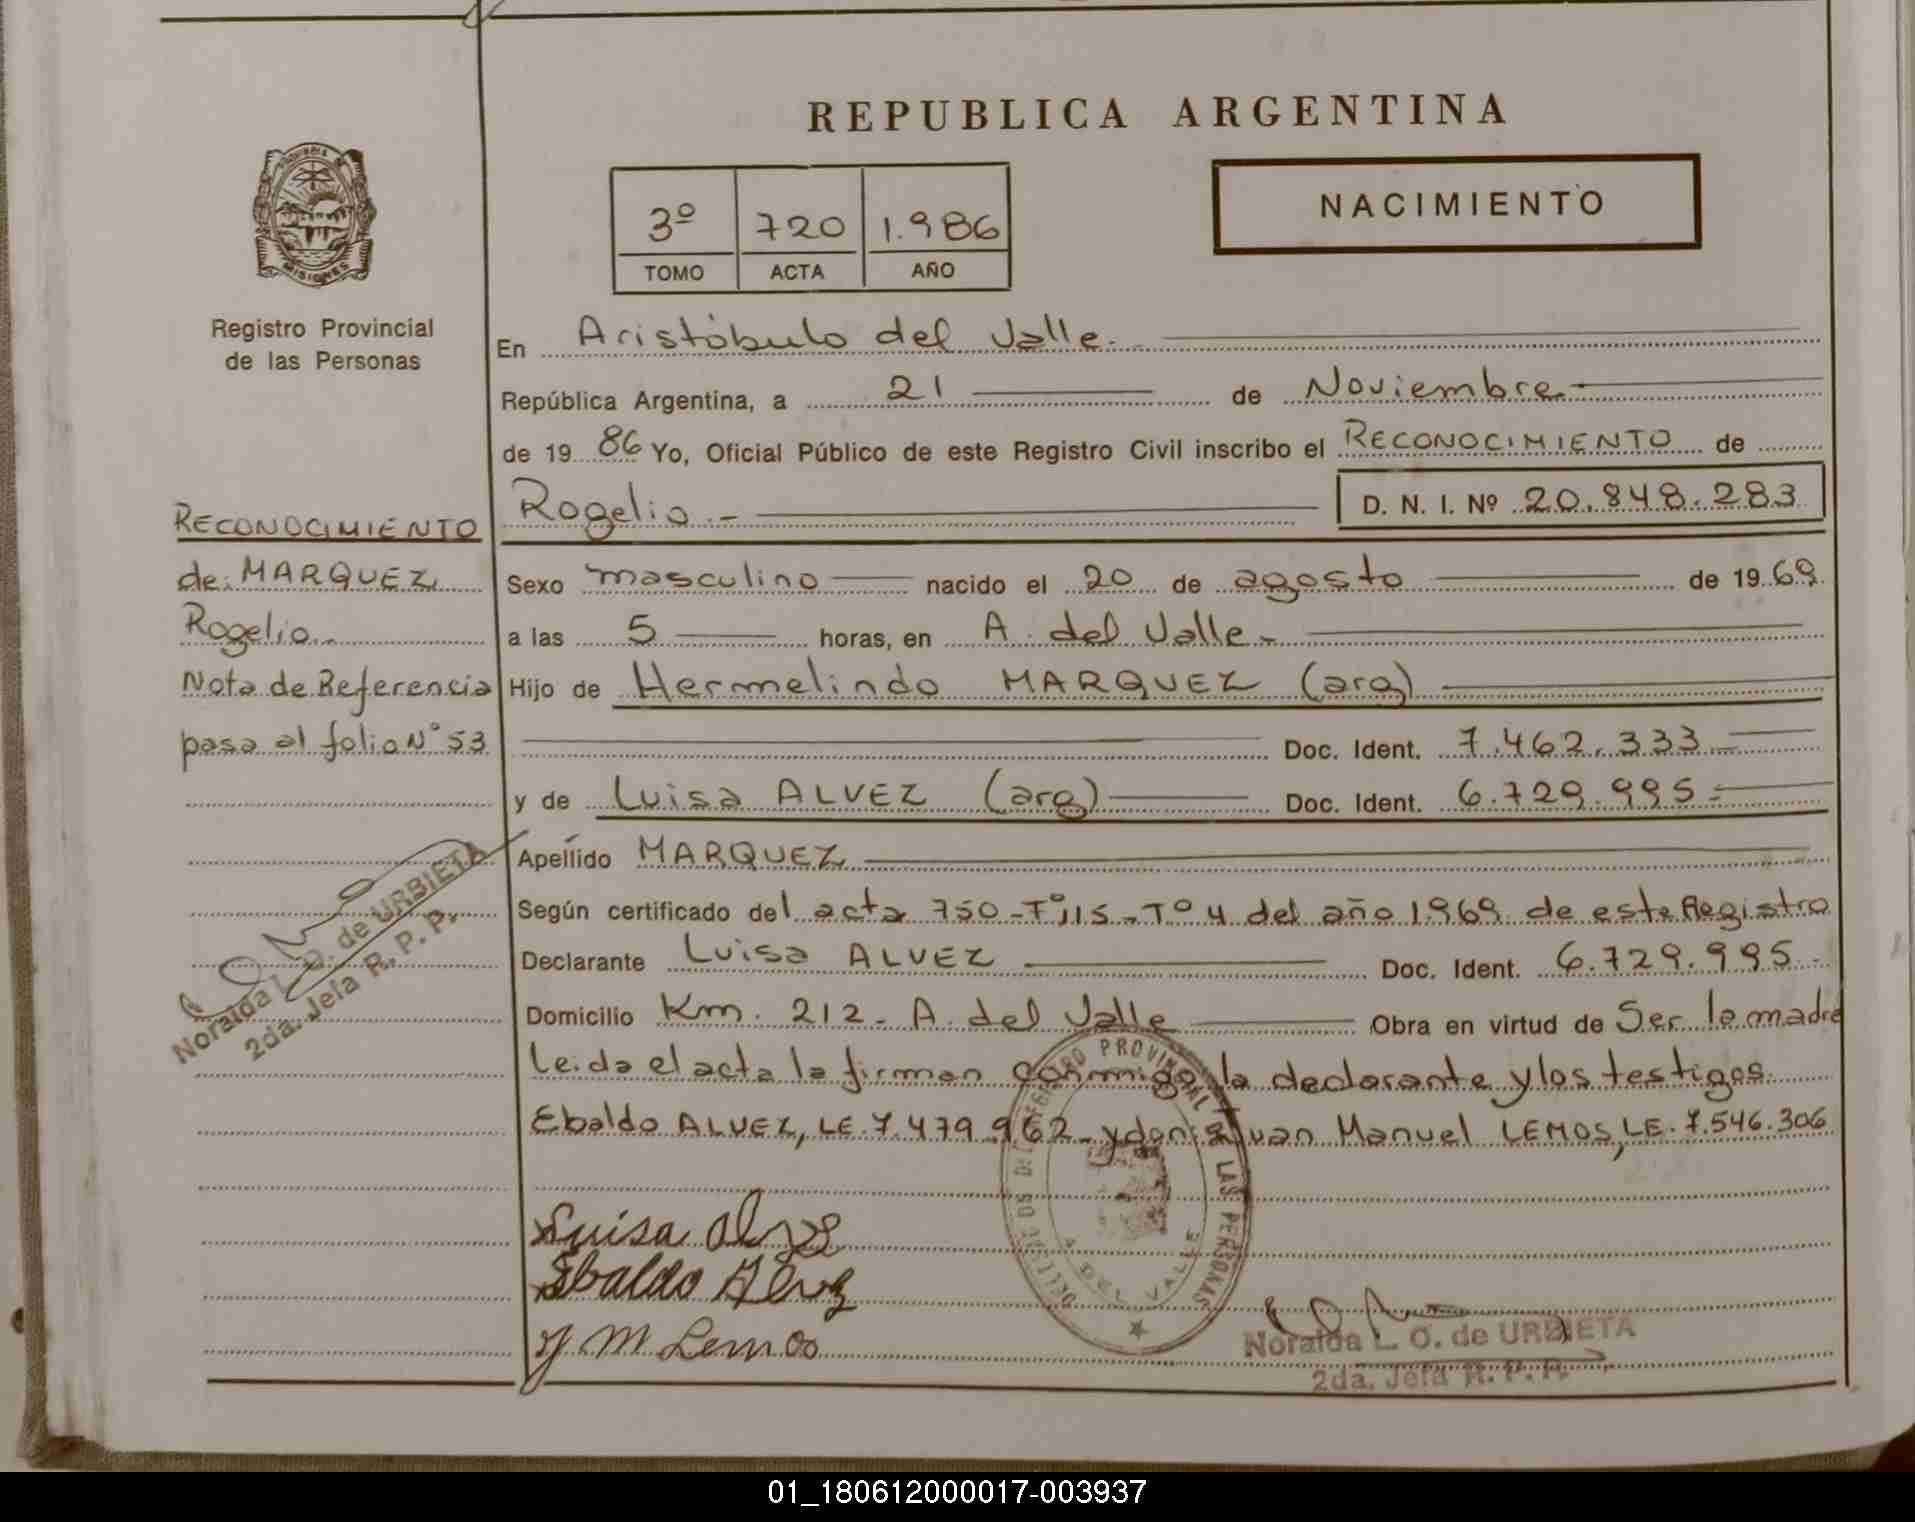 REPUBLICA ARGENTINA
PROVINCIA DE
MISIONES
Registro Provincial
de las Personas
3º 720 1.986
TOMO ACTA AÑO
NACIMIENTO
En Aristóbulo del Valle.
República Argentina, a 21 de Noviembre
de 19 86 Yo, Oficial Público de este Registro Civil inscribo el RECONOCIMIENTO de
Rogelio.- D. N. I. Nº 20.848.283
Sexo masculino nacido el 20 de agosto de 19 69
a las 5 horas, en A. del Valle-
Hijo de Hermelindo MARQUEZ (arg)
Doc. Ident. 7.462.333
y de Luisa ALVEZ (arg) Doc. Ident. 6.729.995-
Apellido MARQUEZ
Según certificado del acta 750-Fº115-Tº4 del año 1969 de este Registro
Declarante Luisa ALVEZ Doc. Ident. 6.729.995-
Domicilio Km. 212- A. del Valle Obra en virtud de Ser la madre
Leida el acta la firman conmigo la declarante y los testigos
Ebaldo ALVEZ, LE.7.479.962- y don Juan Manuel LEMOS, LE.7.546.306
RECONOCIMIENTO
de: MARQUEZ
Rogelio.-
Nota de Referencia
pasa al folio Nº 53
Noralda L. O. de URBIETA
2da. Jefa R. P. P.
Luisa Alvez
Ebaldo Alvez
J M Lemos
REGISTRO PROVINCIAL DE LAS PERSONAS
A. DEL VALLE
Noralda L. O. de URBIETA
2da. Jefa R. P. P.
01_180612000017-003937